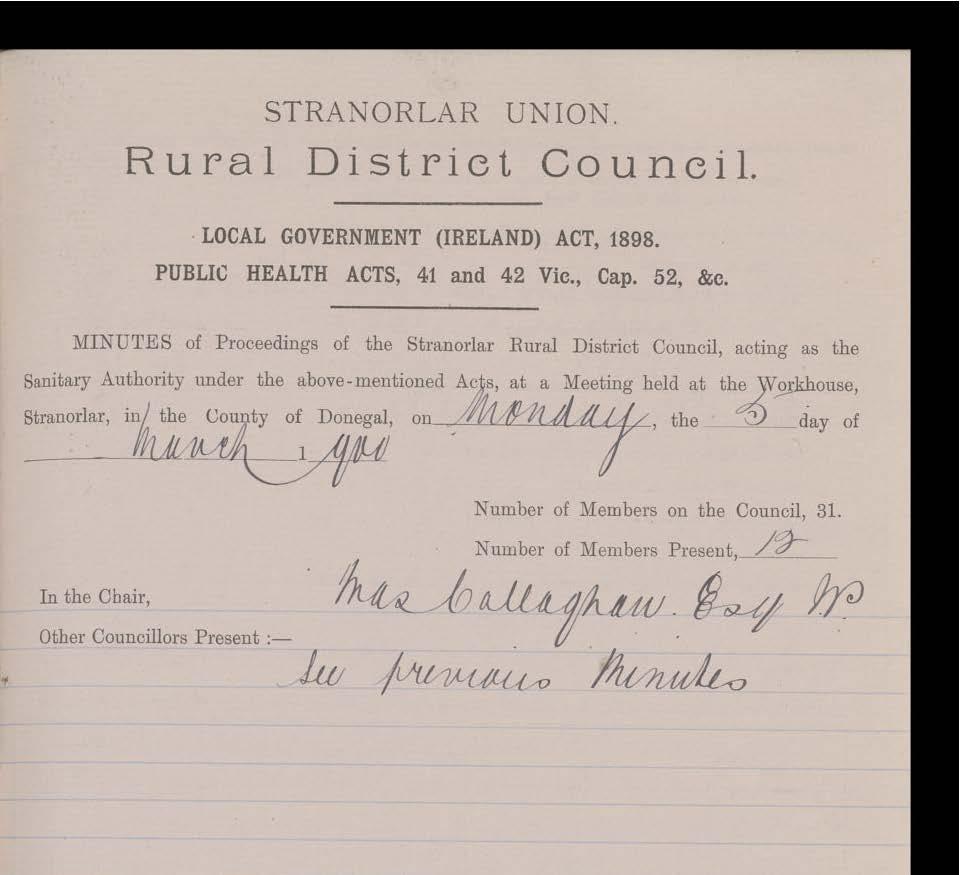 STRANORLAR UNION.
Rural District Council.
LOCAL GOVERNMENT (IRELAND) ACT, 1898.
PUBLIC HEALTH ACTS, 41 and 42 Vic., Cap. 52, &c.
MINUTES of Proceedings of the Stranorlar Rural District Council, acting as the
Sanitary Authority under the above-mentioned Acts, at a Meeting held at the Workhouse,
Stranorlar, in the County of Donegal, on Monday, the 5 day of
March 1900
Number of Members on the Council, 31.
Number of Members Present, 12
In the Chair, Callaghan Esq
Other Councillors Present :—
See previous Minutes